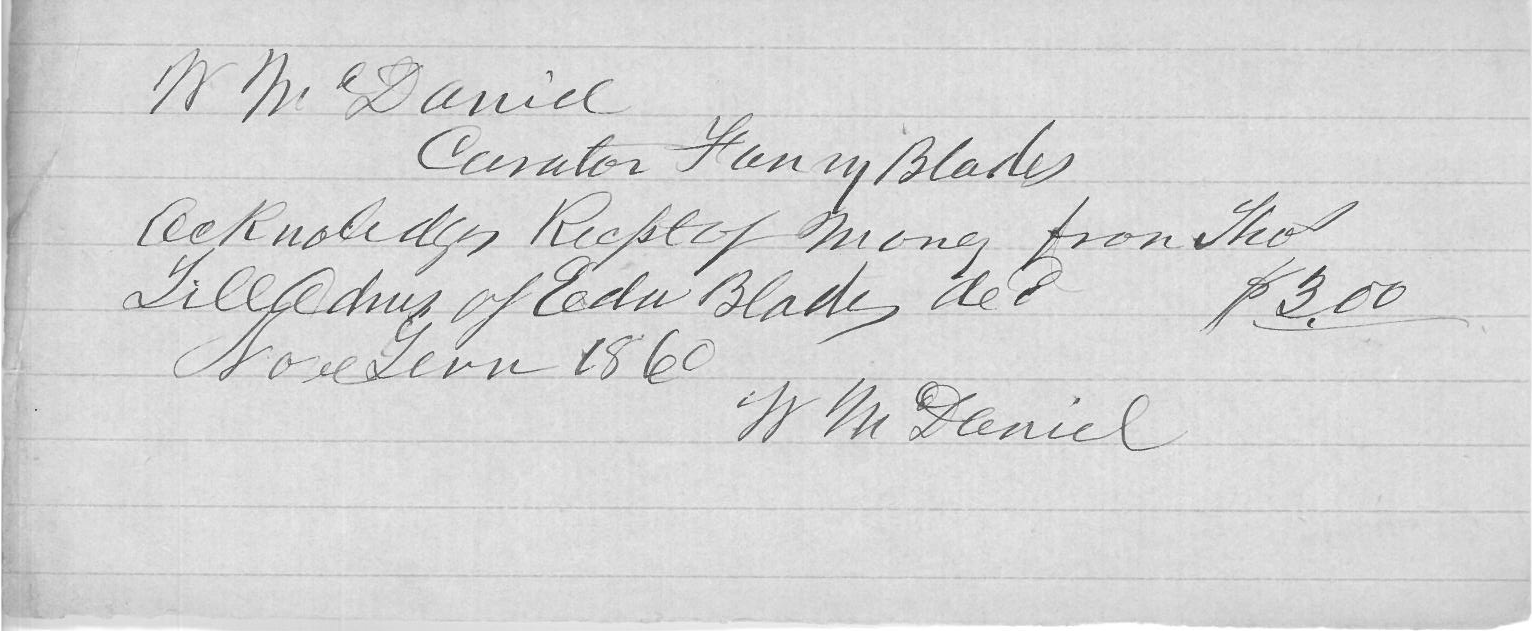 W McDaniel
Curator Fanny Blades
Acknoledges Recpt of Money from Thos
Gill Admr of Edw Blades decd $3.00
Nove Term 1860
W McDaniel